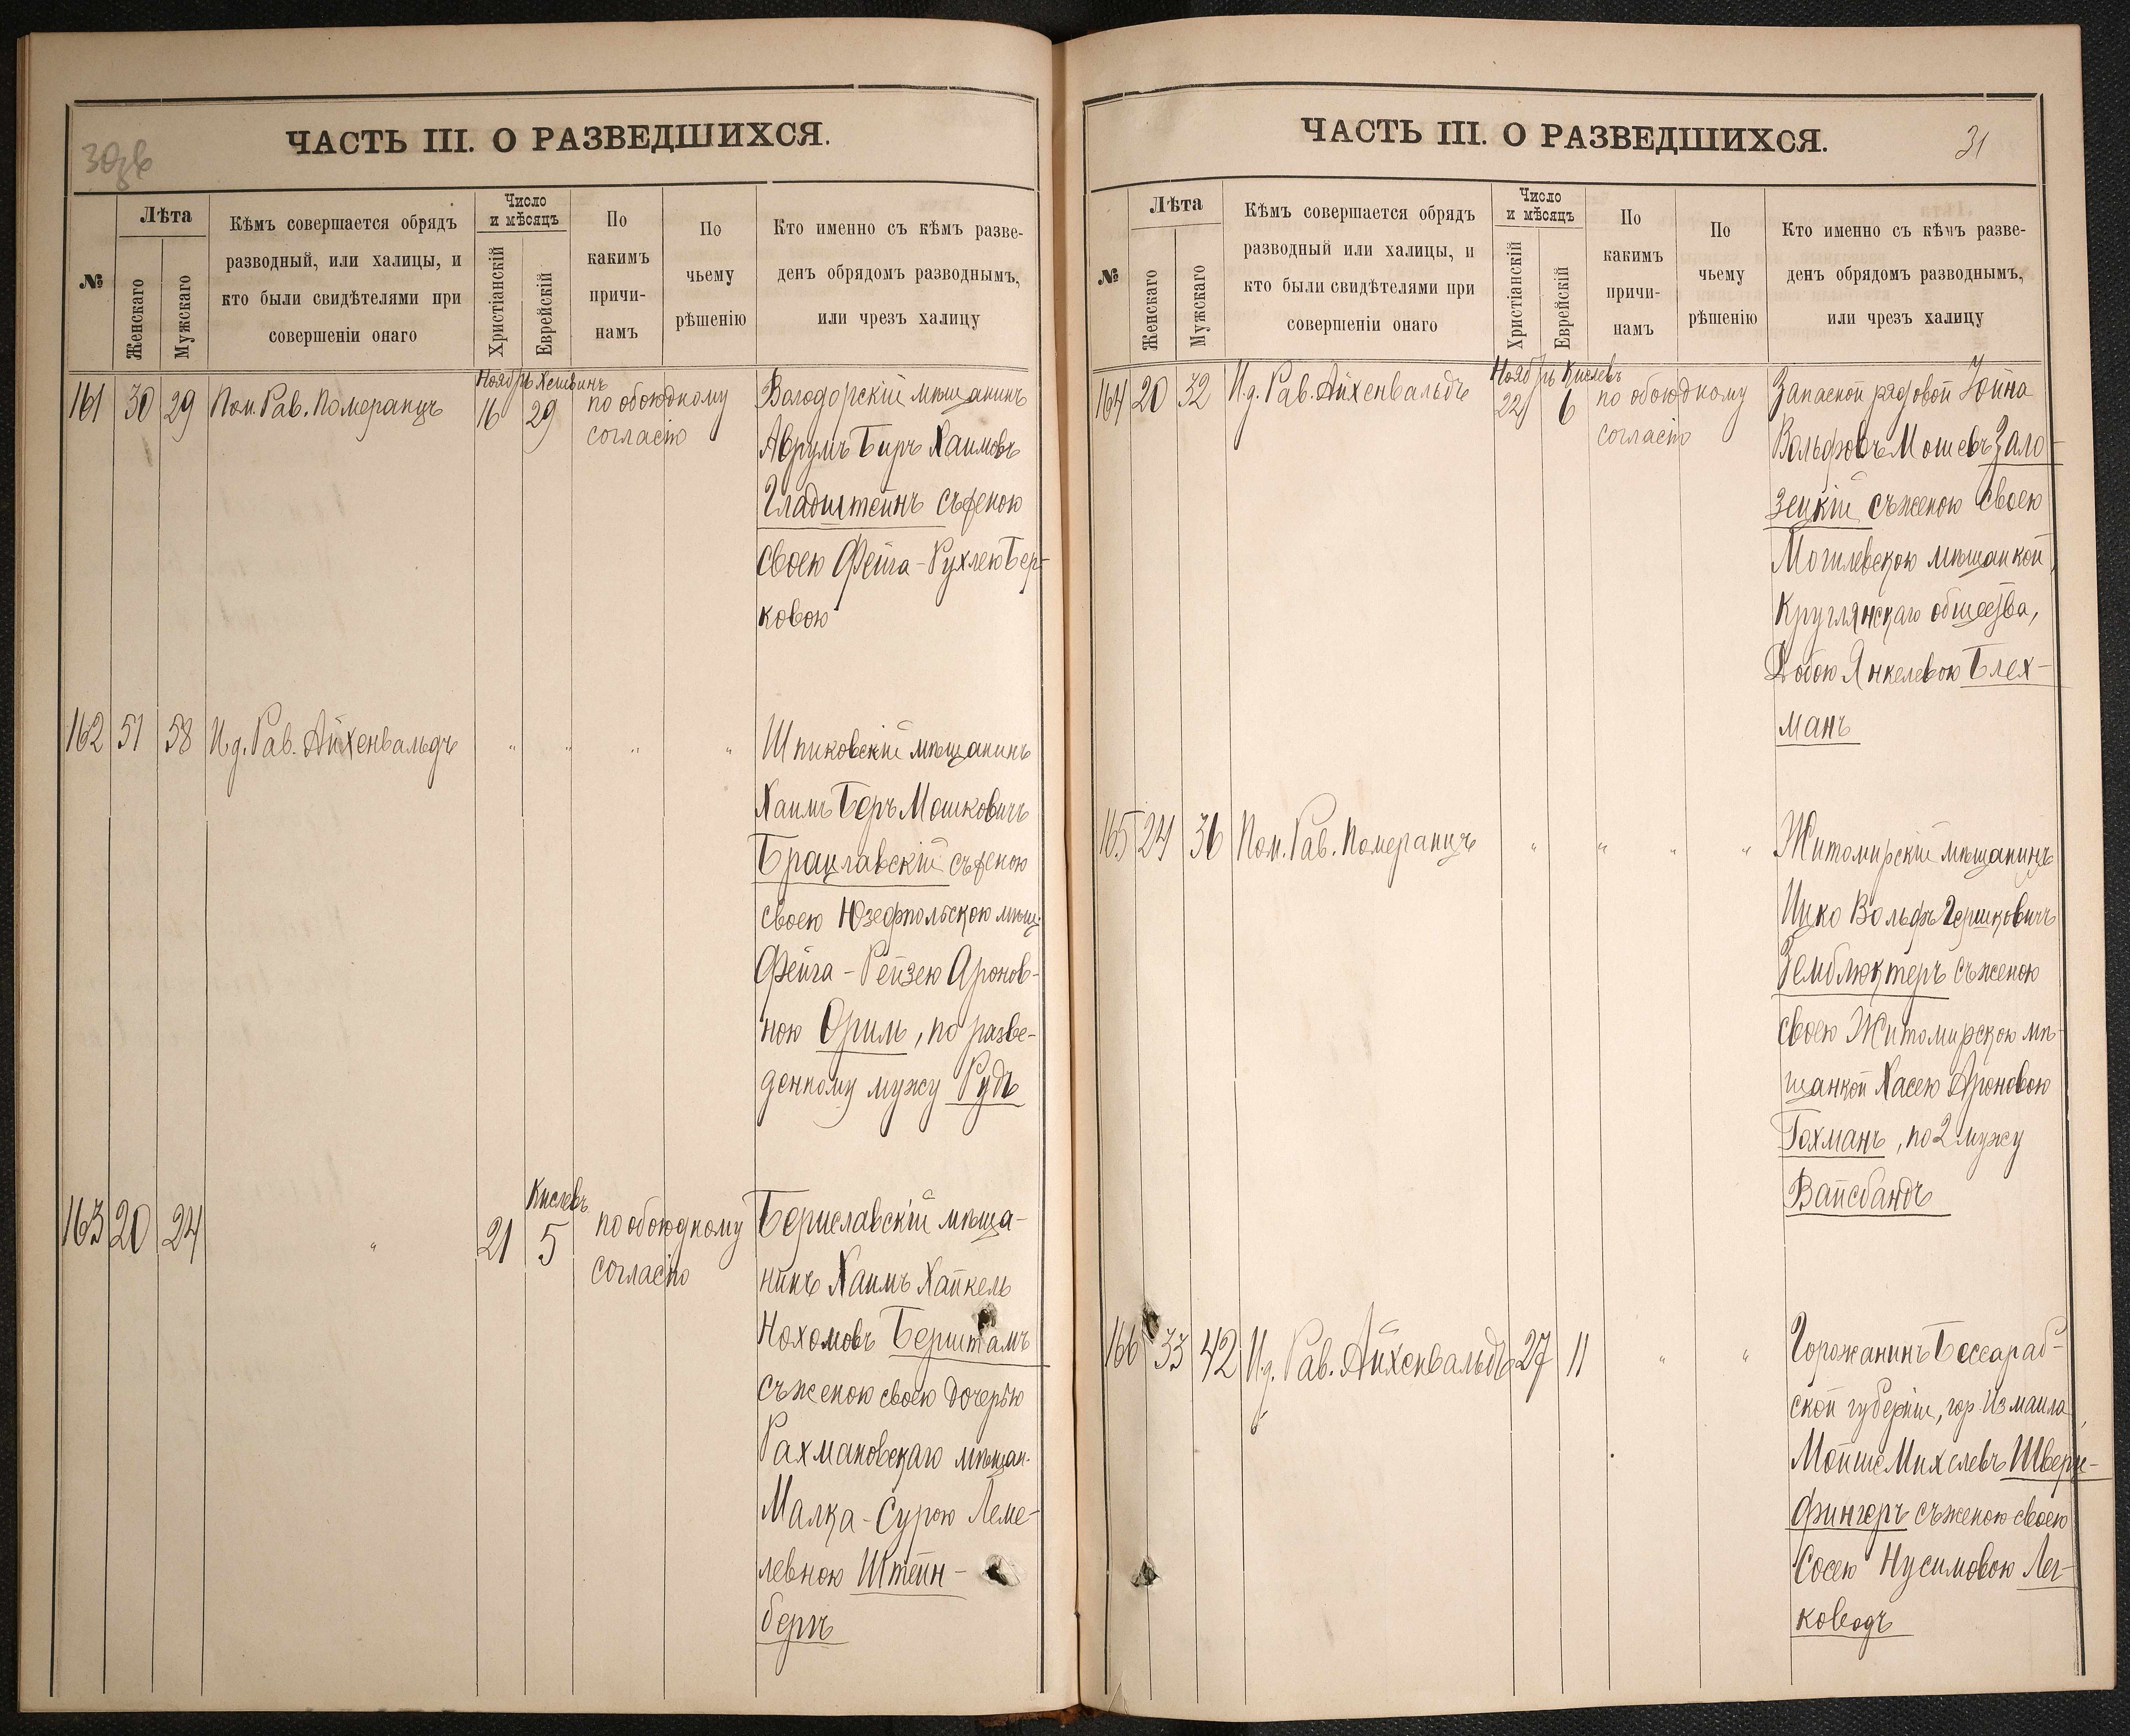 ЧАСТЬ III. О РАЗВЕДШИХСЯ.
№
Лѣта
Женскаго
Мужскаго
Кѣмъ совершается обрядъ
разводный, или халицы, и
кто были свидѣтелями при
совершеніи онаго
Число
и мѣсяцъ
Христіанскій
Еврейскій
По
какимъ
причи-
намъ
По
чьему
рѣшенію
Кто именно съ кѣмъ разве-
денъ обрядомъ разводнымъ,
или чрезъ халицу
161 30 29 Пом. Рав. Померанцъ
Ноябрь Хешвинъ
16 29
по обоюдному
согласію
мѣщанинъ
Аврумъ Беръ Хаимовъ
Гладштейнъ съ женою
своею Фейга-Рухлею Бер-
ковою
162 51 58 И.д. Рав. Айхенвальдъ
" " " "
Шпиковскій мѣщанинъ
Хаимъ Беръ Мошковичъ
Брацлавскій съ женою
своею Юзефпольскою мѣщ.
Фейга-Рейзею Аронов-
ною Орим, по разве-
денному мужу Рудъ
163 20 24 "
Кислевъ
21 5
по обоюдному
согласію
Бериславскій мѣща-
нинъ Хаимъ Хайкель
Нохомовъ Берштамъ
съ женою своею дочерью
Рахмановскаго мѣщан.
Малка-Сурою Леме-
левною Штейн-
бергъ
ЧАСТЬ III. О РАЗВЕДШИХСЯ.
31
№
Лѣта
Женскаго
Мужскаго
Кѣмъ совершается обрядъ
разводный или халицы, и
кто были свидѣтелями при
совершеніи онаго
Число
и мѣсяцъ
Христіанскій
Еврейскій
По
какимъ
причи-
намъ
По
чьему
рѣшенію
Кто именно съ кѣмъ разве-
денъ обрядомъ разводнымъ,
или чрезъ халицу
164 20 32 И.д. Рав. Айхенвальдъ
Ноябрь Кислевъ
22 6
по обоюдному
согласію
Запасной рядовой Іойна
Вольфовъ Мошевъ Зало-
зецкій съ женою своею
Могилевскою мѣщанкой,
Круглянскаго общества,
Добою Янкелевою Блех-
манъ
165 24 36 Пом. Рав. Померанцъ
" " " "
Житомирскій мѣщанинъ
Ицко Вольфъ Гершковичъ
Гемблюктеръ съ женою
своею Житомирскою мѣ-
щанкой Хасею Ароновою
Гохманъ, по 2 мужу
Вайсбандъ
166 33 42 И.д. Рав. Айхенвальдъ 27 11 " "
Горожанинъ Бессараб-
ской губерніи, гор. Измаила,
Мойше Михелевъ Шверц-
фингеръ съ женою своею
Сосею Нусимовою Лег-
ководъ